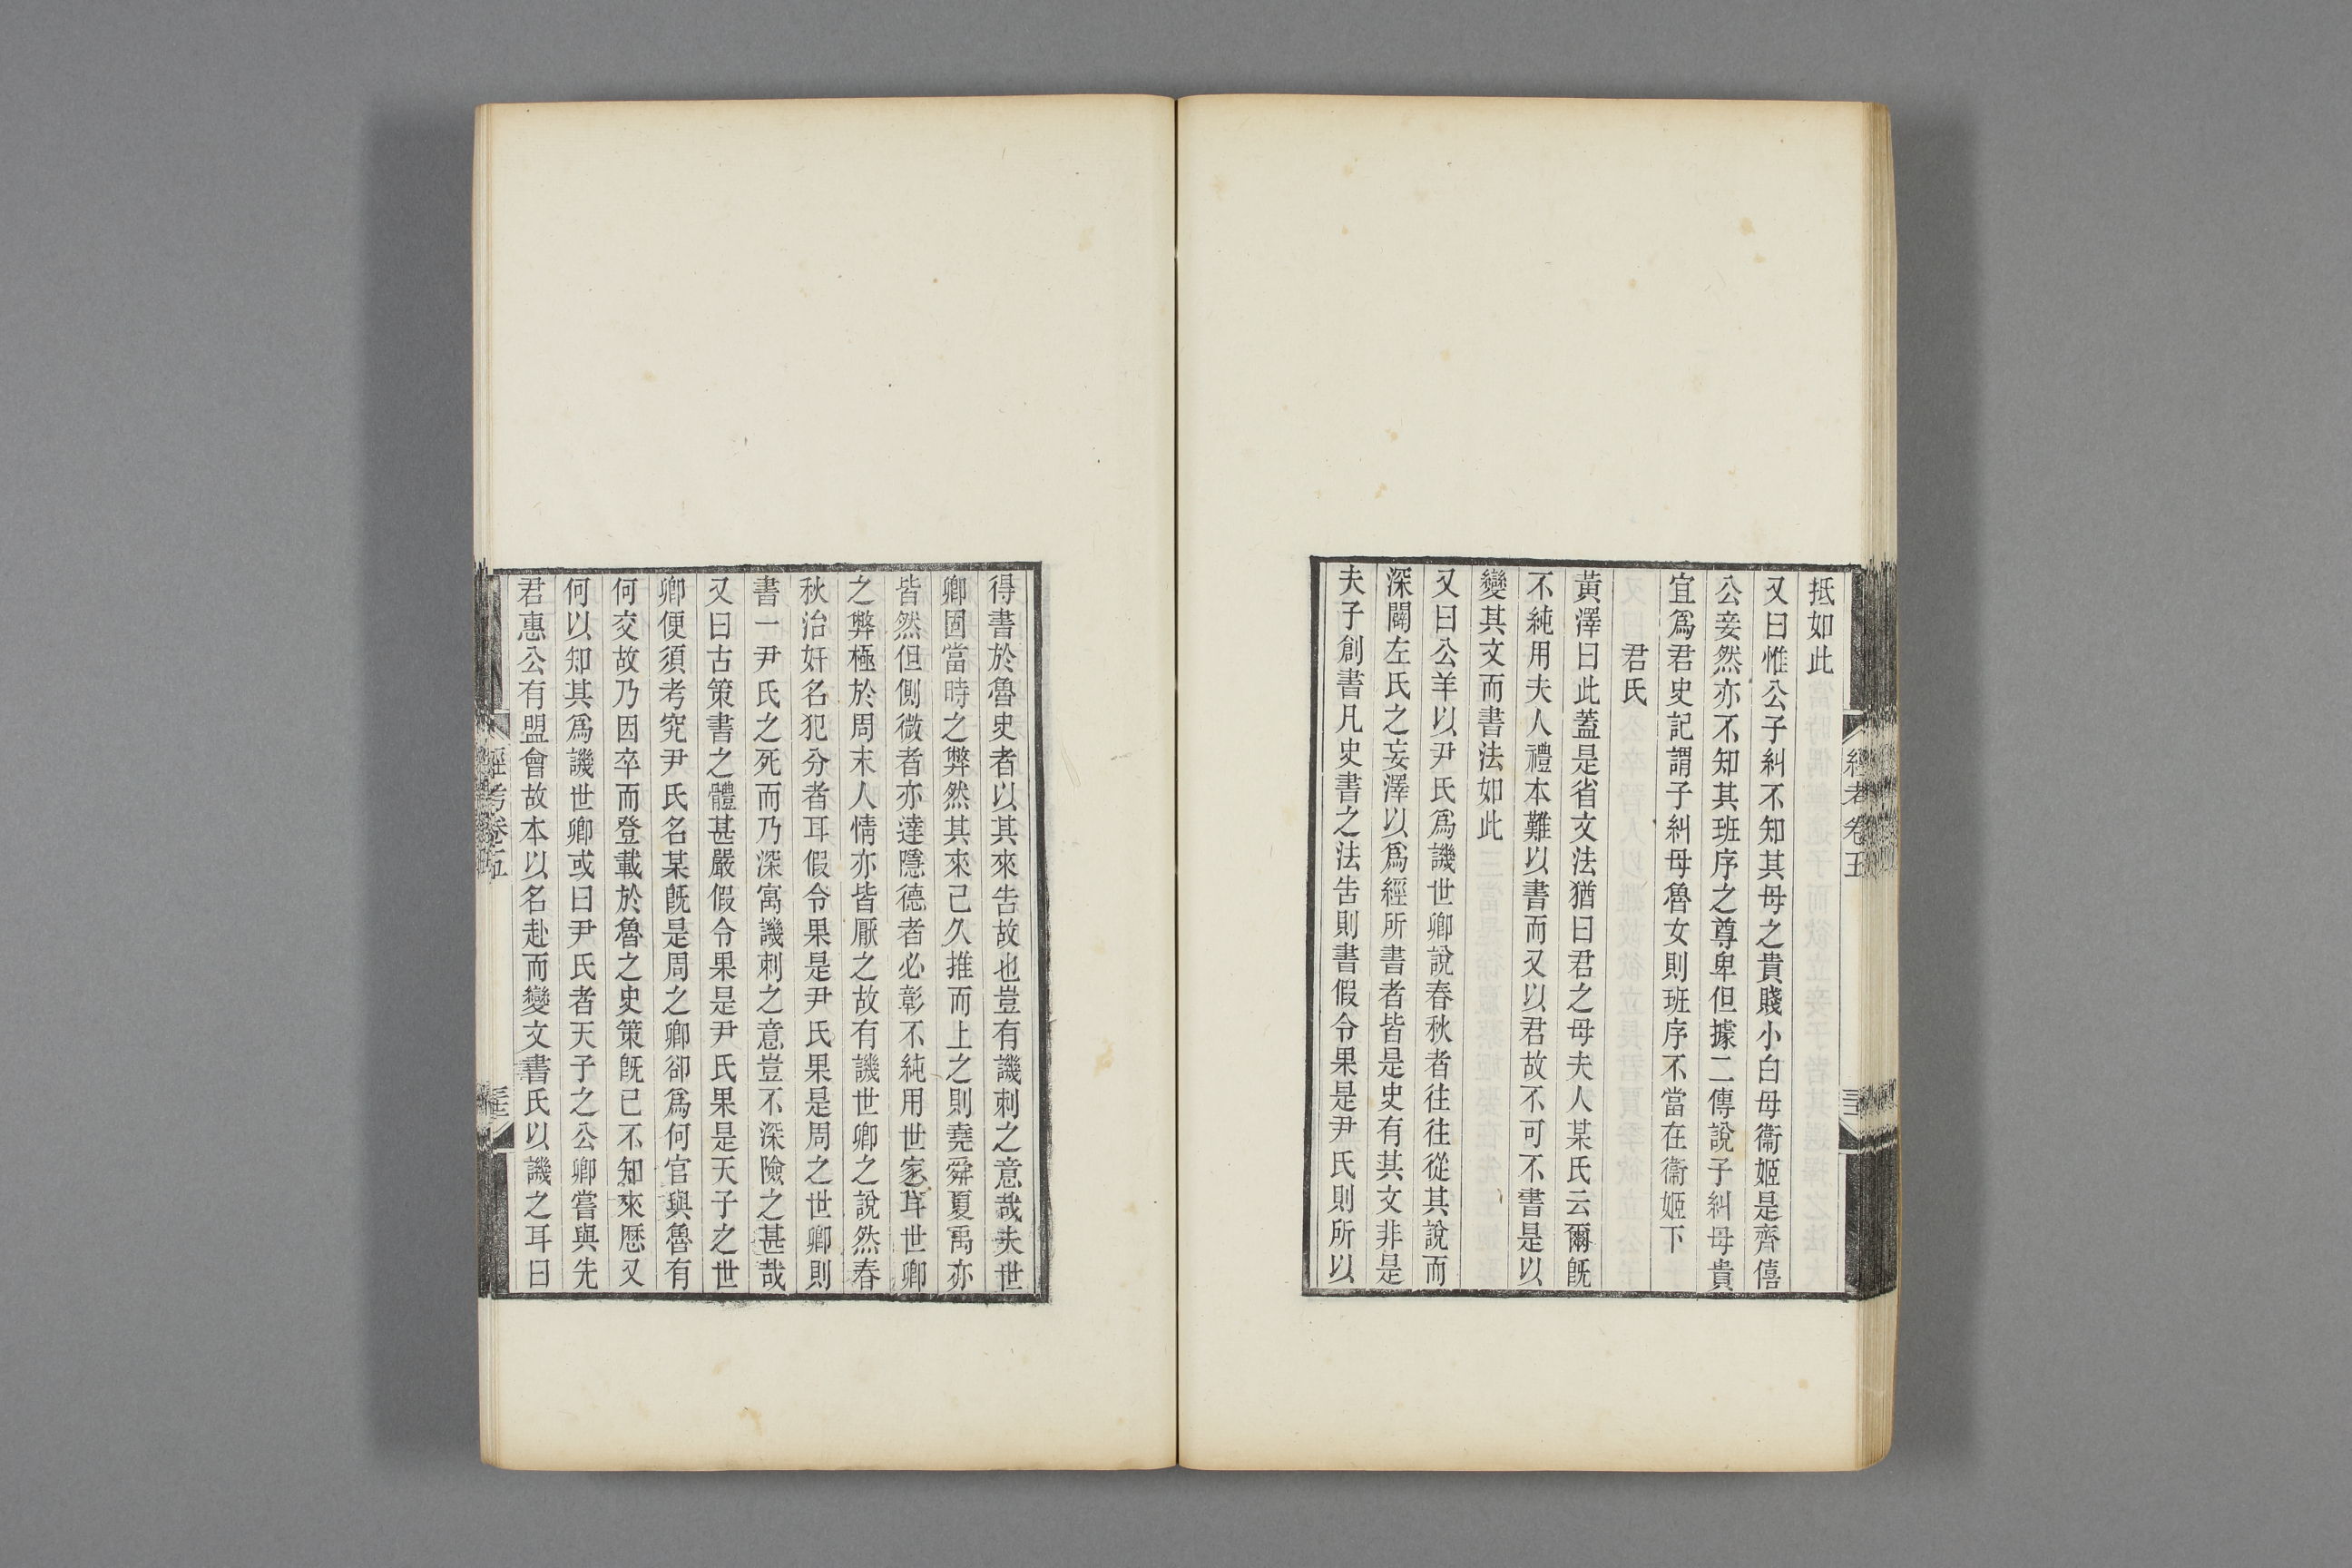 抵如此
又曰惟公子糾不知其母之貴賤小白母衞姬是齊僖
公妾然亦不知其班序之尊卑但據二傳說子糾母貴
宜爲君史記謂子糾母魯女則班序不當在衞姬下
君氏
黃澤曰此蓋是省文法猶曰君之母夫人某氏云爾旣
不純用夫人禮本難以書而又以君故不可不書是以
變其文而書法如此
又曰公羊以尹氏爲譏世卿說春秋者往往從其說而
深闢左氏之妄澤以爲經所書者皆是史有其文非是
夫子創書凡史書之法告則書假令果是尹氏則所以
得書於魯史者以其來告故也豈有譏刺之意哉夫世
卿固當時之弊然其來已久推而上之則堯舜夏禹亦
皆然但側微者亦達隱德者必彰不純用世家耳世卿
之弊極於周末人情亦皆厭之故有譏世卿之說然春
秋治奸名犯分者耳假令果是尹氏果是周之世卿則
書一尹氏之死而乃深寓譏刺之意豈不深險之甚哉
又曰古策書之體甚嚴假令果是尹氏果是天子之世
卿便須考究尹氏名某旣是周之卿卻爲何官與魯有
何交故乃因卒而登載於魯之史策旣已不知來歷又
何以知其爲譏世卿或曰尹氏者天子之公卿嘗與先
君惠公有盟會故本以名赴而變文書氏以譏之耳曰
經考卷五